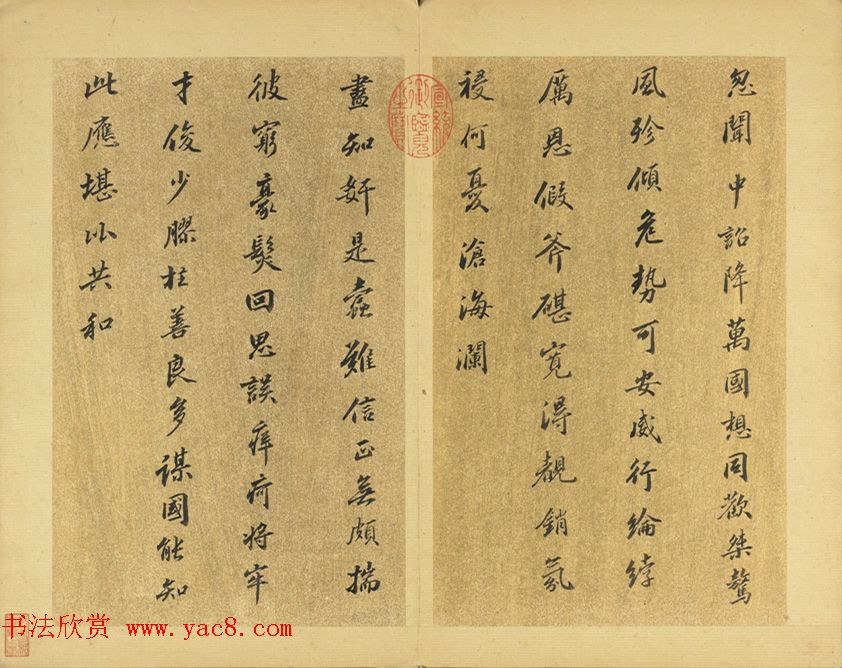 忽聞中詔降萬國想同歡桀驁
風殄傾危勢可安威行綸綍
厲恩假斧碪寬淂覩銷氛
祲何憂滄海瀾
盡知奸是蠹難信正無頗揣
彼窮豪髮回思誤痒疴將牢
才俊少膠柱善良多謀國能知
此應堪以共和
宣統御覽之寶
书法欣赏 www.yac8.com